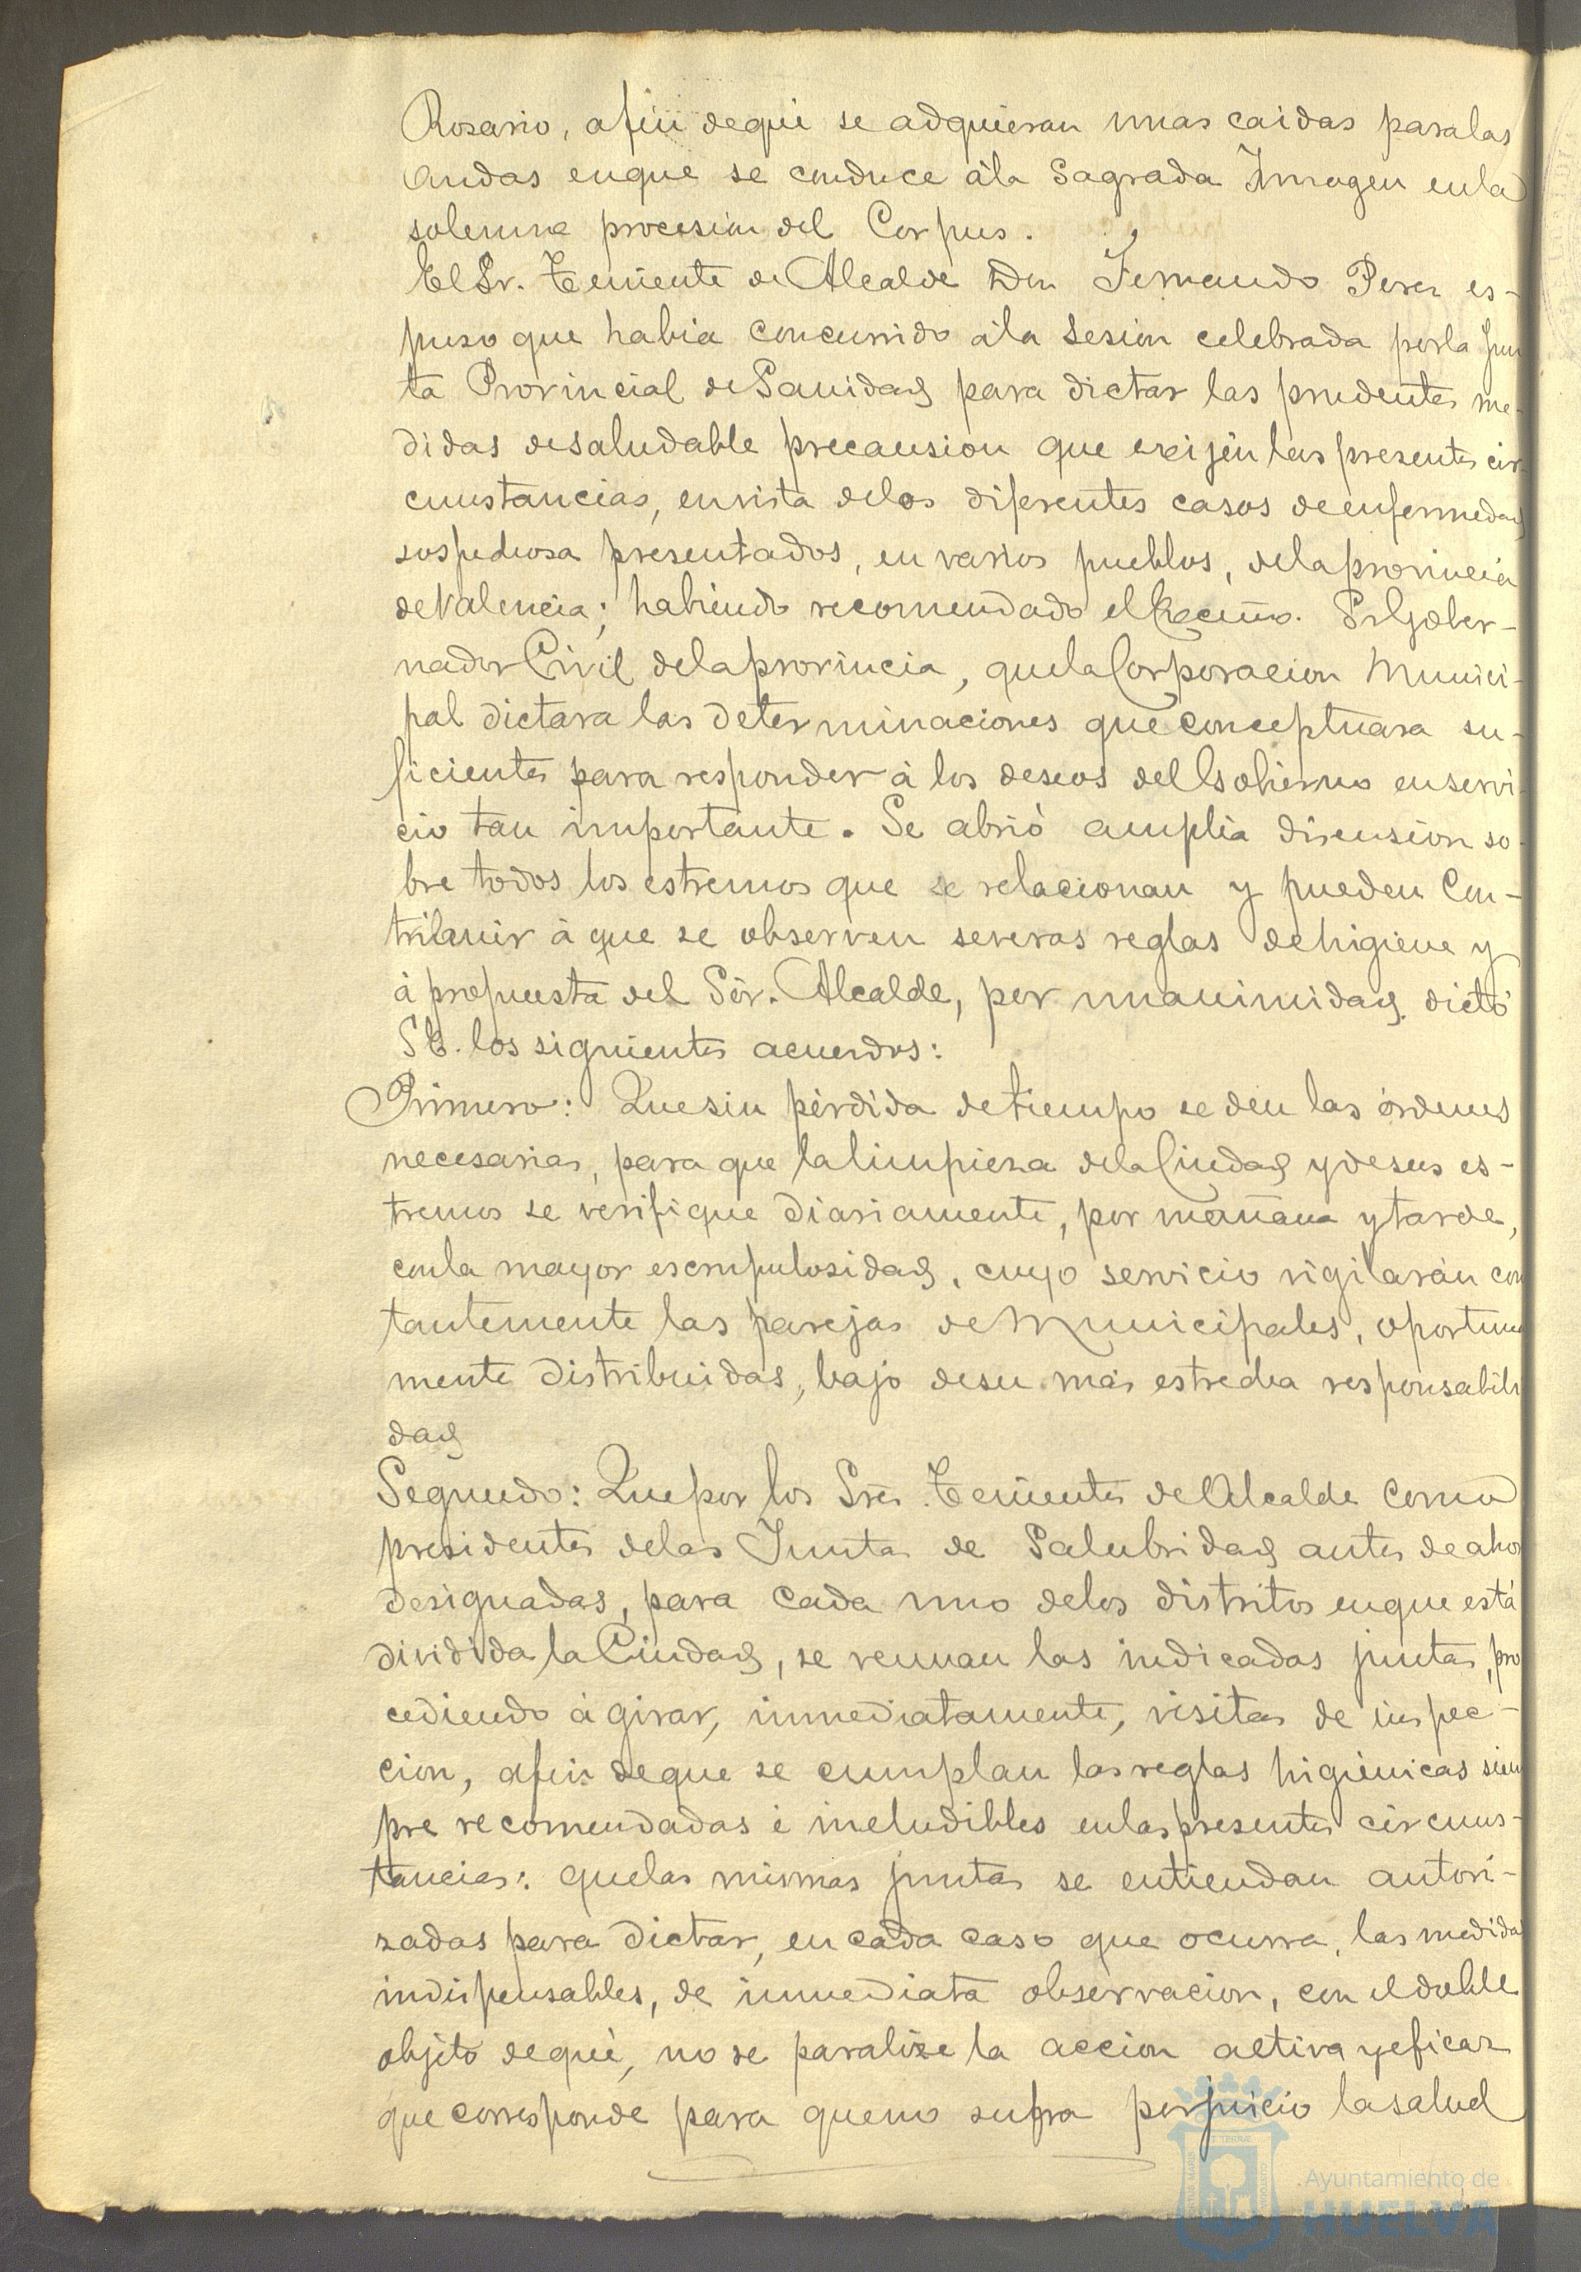 Rosario, afin deque se adquieran unas caidas paralas
Andas enque se conduce ála Sagrada Imagen enla
solemne procesion del Corpus.
El Sr. Teniente de Alcalde Don Fernando Perez es-
puso que habia concurrido ála Sesion celebrada porla Jun
ta Provincial de Sanidad para dictar las prudentes me-
didas desaludable precausion que exijen las presentes cir-
cunstancias, envista delos diferentes casos de enfermedad
sospechosa presentados, en varios pueblos, dela provincia
de Valencia; habiendo recomendado el Excmo. Sr Gober-
nador Civil dela provincia, que la Corporacion Munici-
pal dictara las determinaciones que conceptuara su-
ficientes para responder á los deseos del Gobierno en servi
cio tan importante. Se abrió amplia discusion so-
bre todos los estremos que se relacionan y pueden Con-
tribuir á que se observen severas reglas de higiene y
á propuesta del Sór. Alcalde, por unanimidad dictó
S E. los siguientes acuerdos:
Primero: Que sin pérdida de tiempo se den las órdenes
necesarias, para que la limpieza dela Ciudad y de sus es-
tremos se verifique diariamente, por mañana y tarde,
conla mayor escrupulosidad, cuyo servicio vigilarán con
tantemente las parejas de Municipales, oportuna
mente distribuidas, bajo desu más estrecha responsabili
dad
Segundo: Que por los Sres Tenientes de Alcalde como
presidentes delas Juntas de Salubridad antes de aho
designadas, para cada uno delos distritos enque está
dividida la Ciudad, se reunan las indicadas juntas, pro
cediendo á girar, inmediatamente, visitas de inspec-
cion, afin deque se cumplan las reglas higiénicas siem
pre recomendadas é ineludibles enlas presentes circuns-
tancias: quelas mismas juntas se entiendan autori-
zadas para dictar, en cada caso que ocurra, las medidas
indispensables, de inmediata observacion, con el doble
objeto deque, no se paralize la accion activa y eficaz
que corresponde para queno sufra perjuicio la salud
Ayuntamiento de
HUELVA